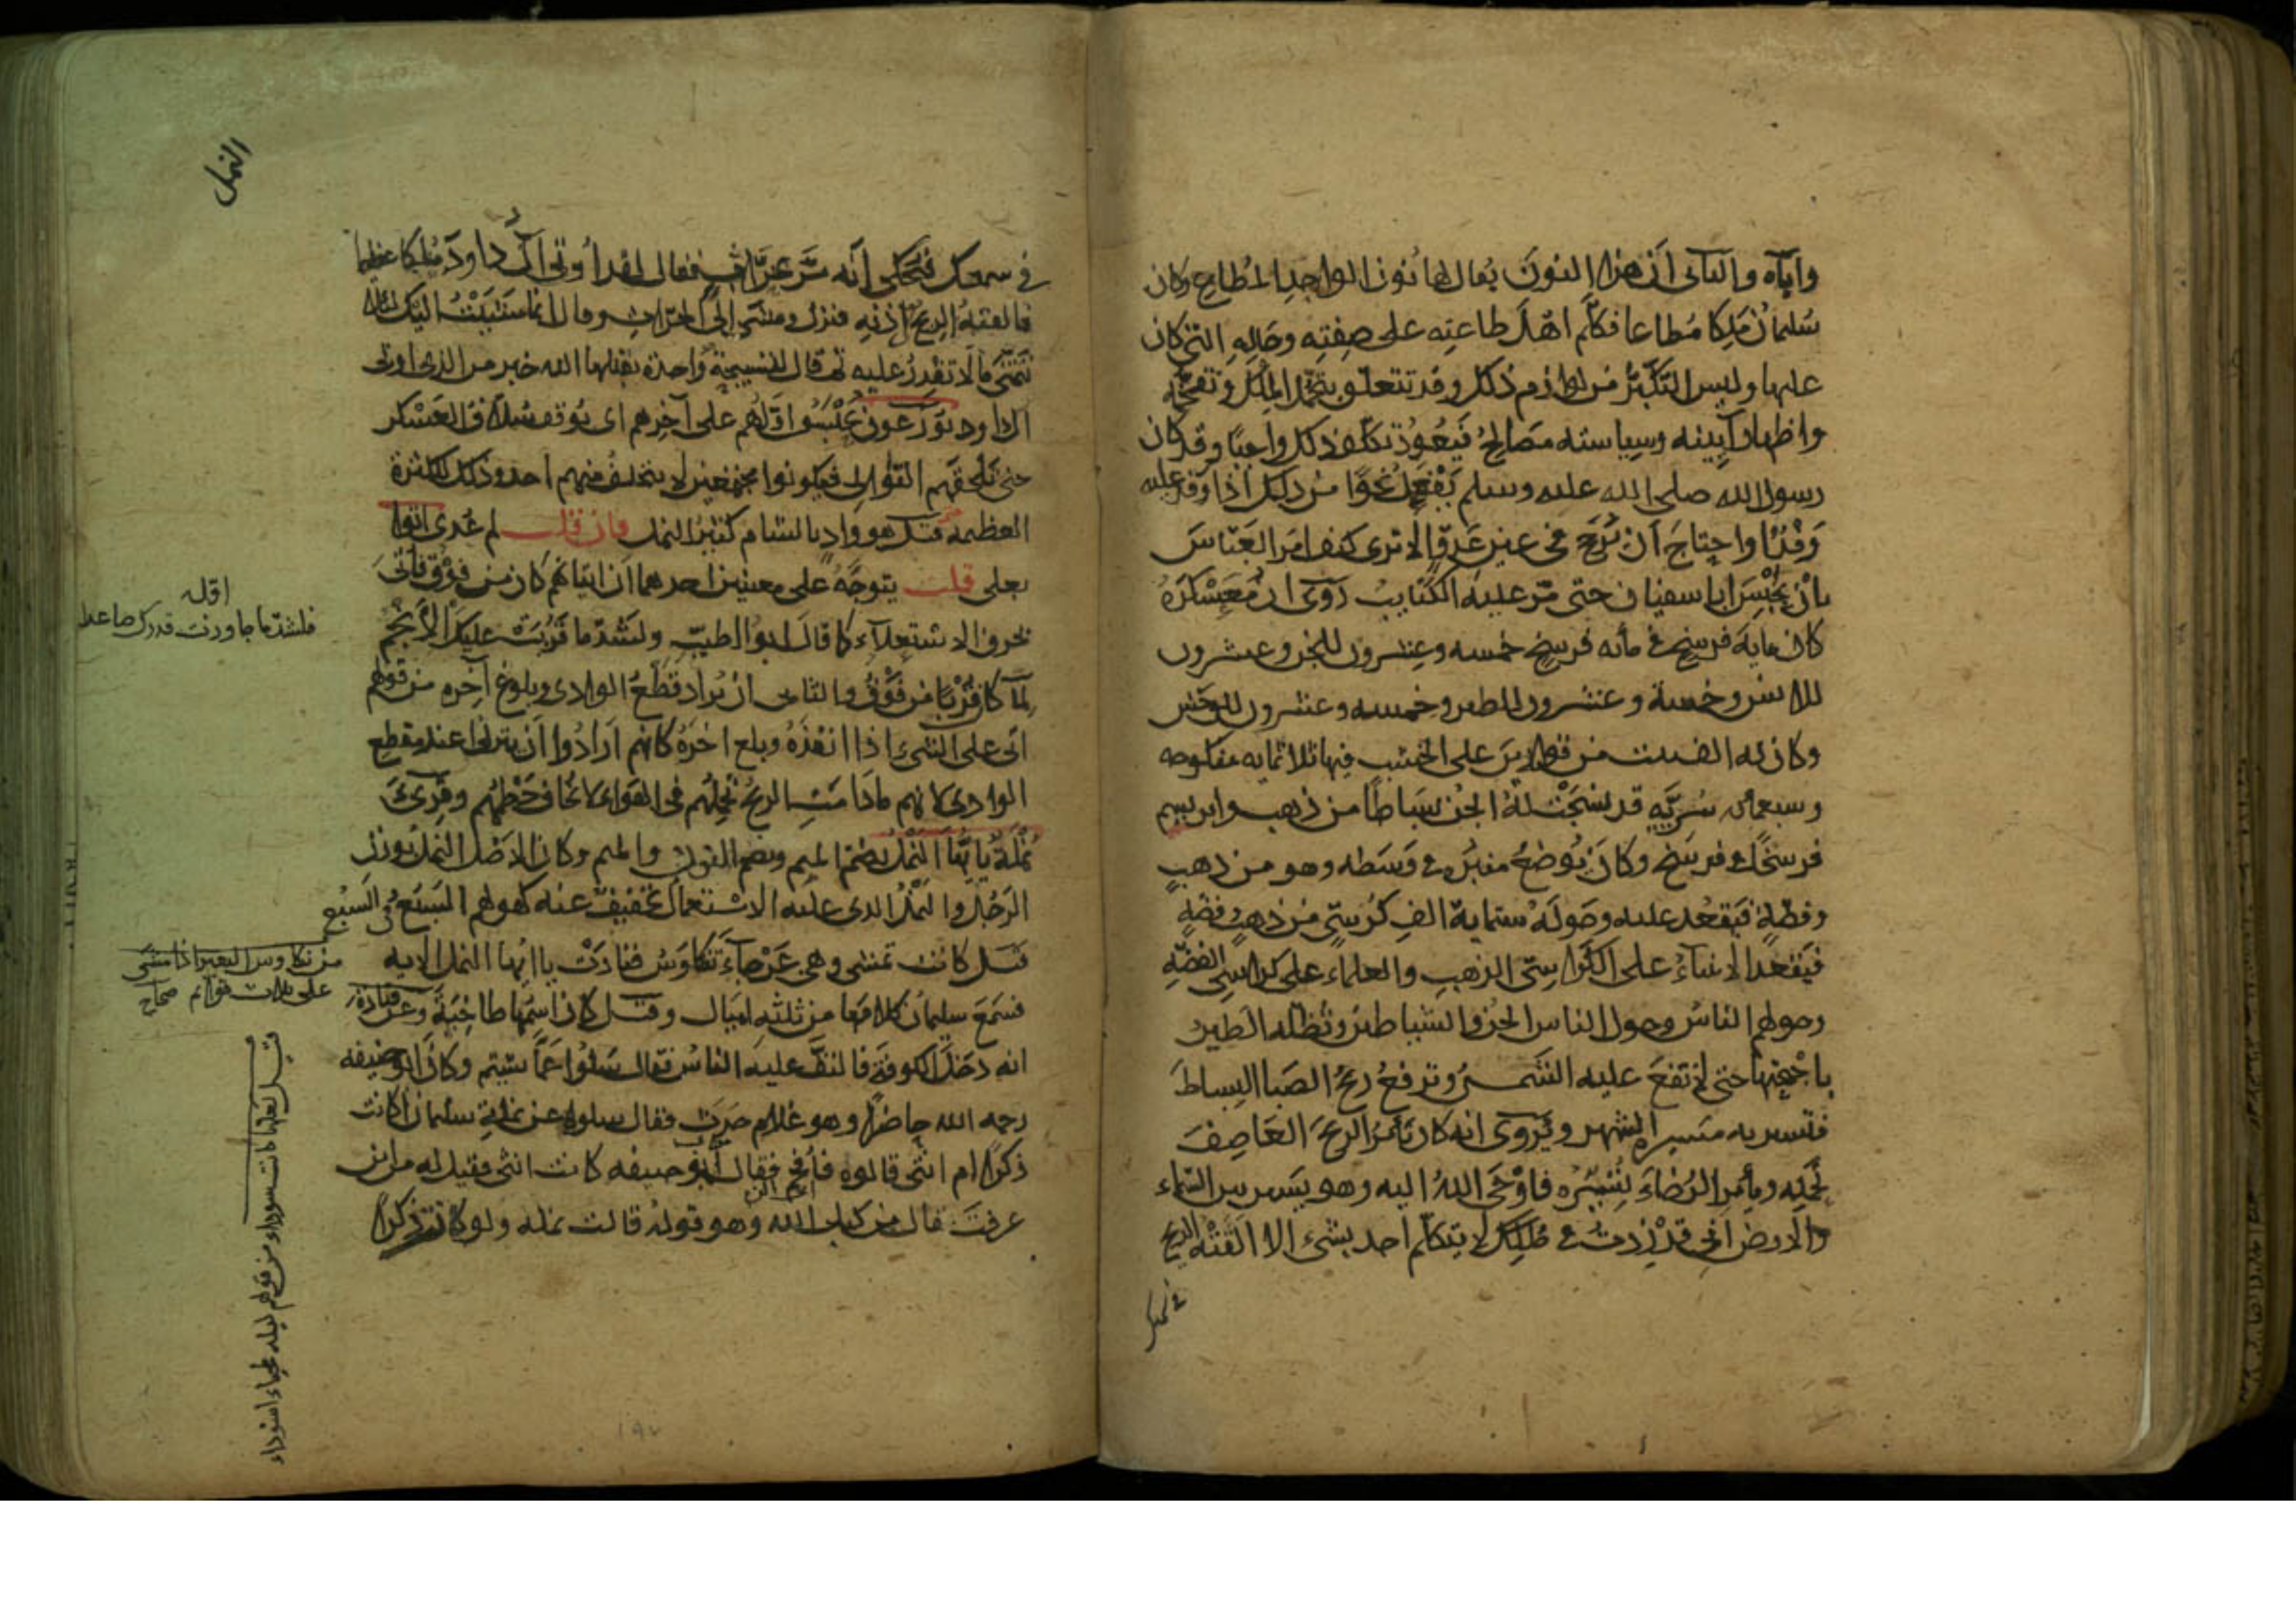 وأباه والثاني أن هذا النون يقال لها نون الواحد المطاع وكان
سليمان ملكا مطاعا فكلم أهل طاعته على صفته وحاله التي كان
عليها وليس التكبر من لوازم ذلك وقد تتعلق بتجمل الملك وتفخمه
واظهار آيينه وسياسته مصالح فيعود تكلف ذلك واجبا وقد كان
رسول الله صلى الله عليه وسلم يفعل نحوا من ذلك اذا وفد عليه
وفد او احتاج أن يرجح في عين عدو الا ترى كيف امر العباس
بان يحبس ابا سفيان حتى تمر عليه الكتايب روى ان معسكره
كان مايه فرسخ في مائه فرسخ خمسه وعشرون للجن وعشرون
للانس وخمسة وعشرون للطير وخمسه وعشرون للوحش
وكان له الف بيت من قوارير على الخشب فيها ثلاثمايه منكوحه
وسبعمائه سريه قد نسجت له الجن بساطا من ذهب وابريسم
فرسخا في فرسخ وكان يوضع منبره في وسطه وهو من ذهب
وفضة فيقعد عليه وحوله ستماية الف كرسي من ذهب وفضة
فيقعد الانبياء على الكراسي الذهب والعلماء على كراسي الفضه
وحولهم الناس وحول الناس الجن والشياطين وتظله الطير
باجنحتها حتى لا تقع عليه الشمس وترفع ريح الصبا البساط
فتسير به مسيرة الشهر ويروى انه كان يأمر الريح العاصف
تحمله ويأمر الرخاء تسيره فاوحى الله اليه وهو يسير بين السماء
والارض اني قد زدت في ملكك لا يتكلم احد بشيء الا القته الريح
في سمعك
النمل
في سمعك فيحكى أنه مر بحراث فقال لقد أوتى آل داود ملكا عظيما
فالقته الريح في أذنه فنزل ومشى إلى الحراث وقال انما مشيت اليك لئلا
تتمنى ما لا تقدر عليه ثم قال لتسبيحة واحدة يقبلها الله خير من الذى اوتى
آل داود يوزعون يحبس اولهم على آخرهم اى يوقف سلاف العسكر
حتى تلحقهم التوالى فيكونوا مجتمعين لا يتخلف منهم احد وذلك للكثرة
العظيمه قيل هو واد بالشام كثير النمل فان قلت لم عدى اتوا
بعلى قلت يتوجه على معنيين احدهما ان اتيانهم كان من فوق فأتى
بحرف الاستعلاء كما قال ابو الطيب ولشد ما قربت عليك الانجم
لما كان قربا من فوق والثانى ان يراد قطع الوادى وبلوغ آخره من قولهم
اتى على الشيء اذا انفذه وبلغ اخره كانهم ارادوا أن ينزلوا عند مقطع
الوادى لانهم مادامت الريح تحملهم في الهواء لا يخاف حطمهم وقرئ
نملة يا ايها النمل بضم الميم وبضم النون والميم وكان الاصل النمل بوزن
الرجل والنمل الذى عليه الاستعمال تخفيف عنه كقولهم السبع في السبع
قيل كانت تمشى وهي عرجاء تتكاوس فنادت يا ايها النمل الايه
فسمع سليمان كلامها من ثلثه اميال وقيل كان اسمها طاخية وعن قتادة
انه دخل الكوفة فالتف عليه الناس فقال سلوا عما شيتم وكان ابو حنيفه
رحمه الله حاضرا وهو غلام حدث فقال سلوه عن نملة سليمان اكانت
ذكرا ام انثى فسالوه فأفحم فقال أبو حنيفه كانت انثى فقيل له من اين
عرفت قال من كتاب الله وهو قوله قالت نمله ولو كانت ذكرا
اوله
فلشد ما جاوزت قدرك صاعدا
من تكاوس البعير اذا مشى
على ثلاث قوائم صحاح
قيل لعلها كانت سوداء من قولهم ليله طخياء اى سوداء